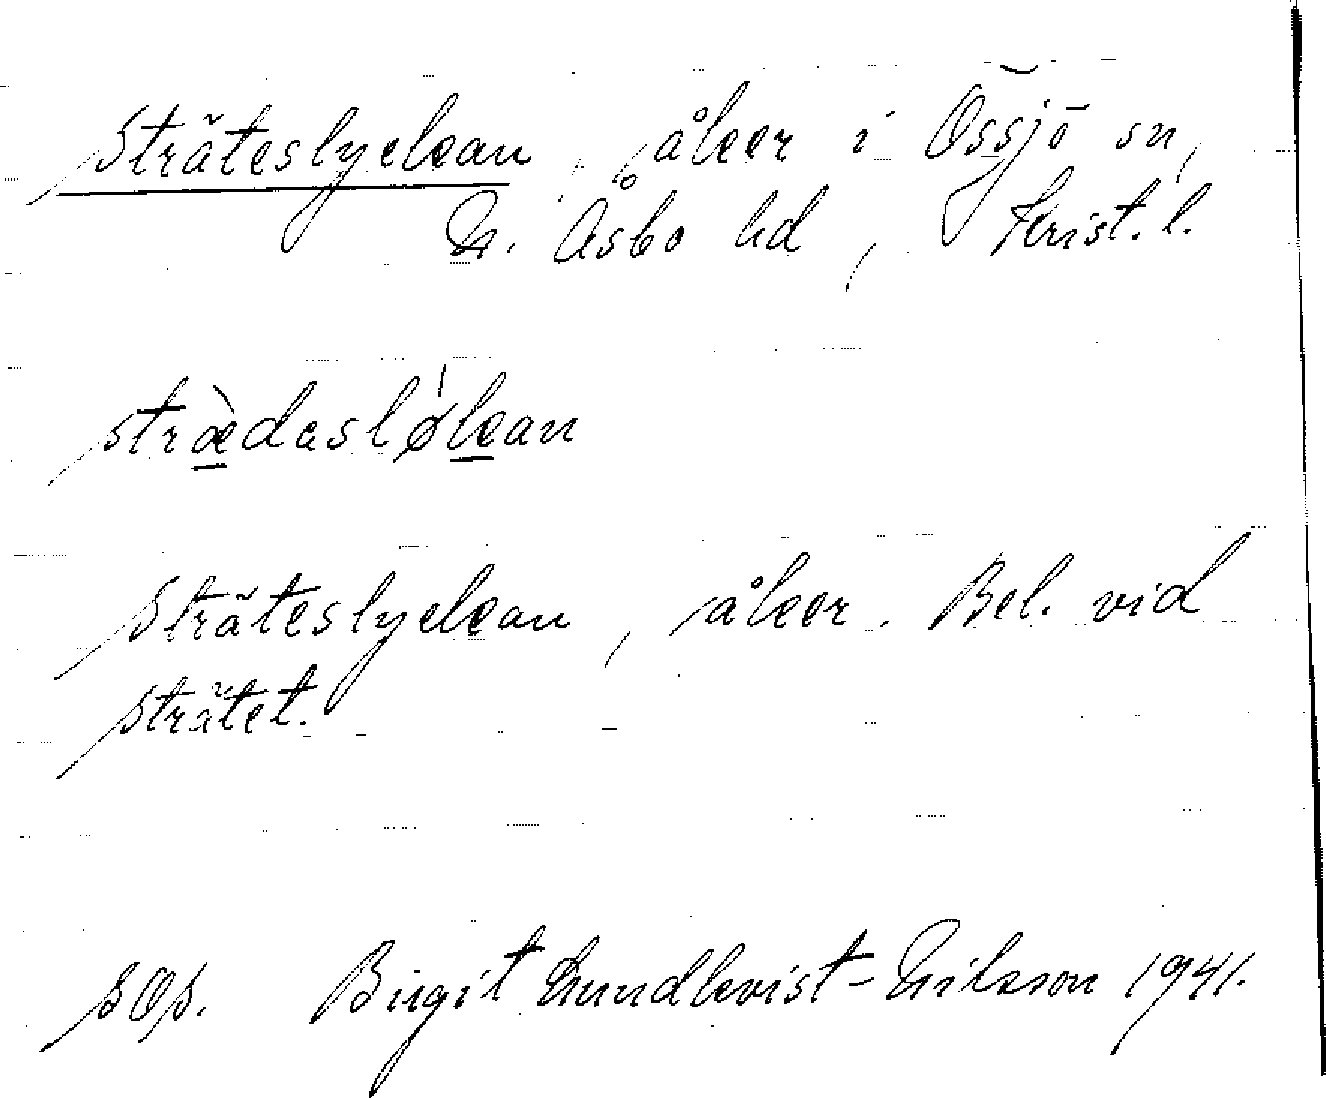 Sträteslyckan, åker i Össjö sn,
N. Åsbo hd, Krist. l.
strædasløkan
Sträteslyckan, åker. Bel. vid
strätet.
SOS. Birgit Lundkvist-Nilsson 1941.